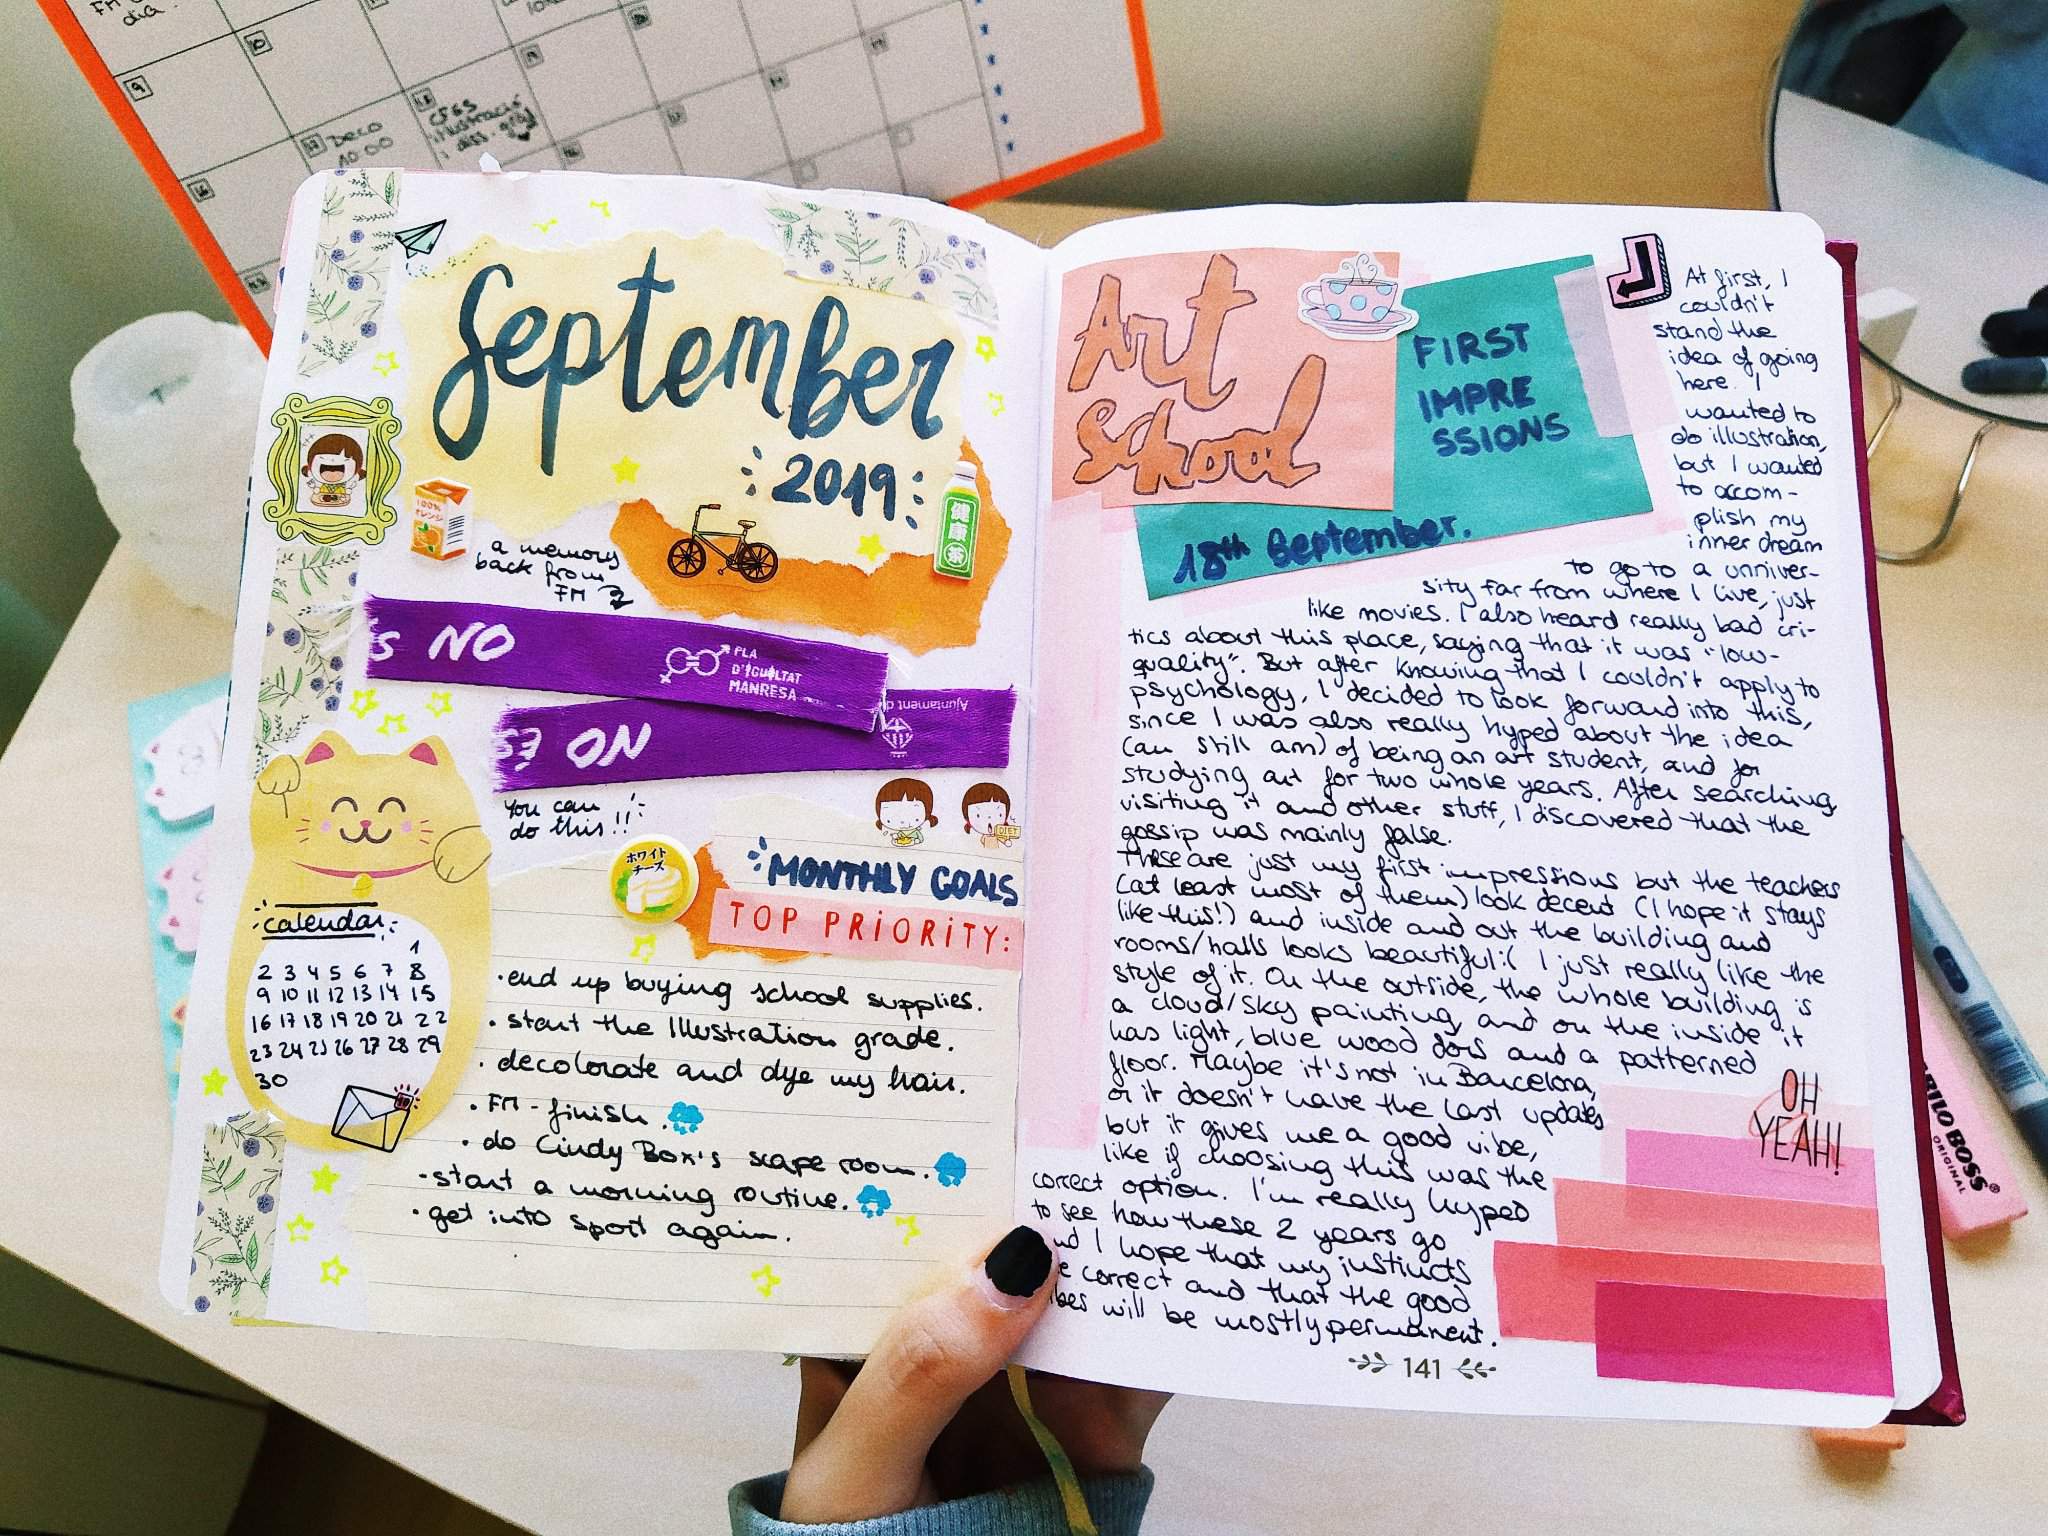 9
10
16
17
DECO
10:00
CFGS
il·lustració
September
2019
100%
オレンジ
健
康
茶
a memory
back from
FM
S NO
PLA
D'IGUALTAT
MANRESA
ÉS NO
Ajuntament d
You can
do this!!
ホワイト
チーズ
DIET
MONTHLY GOALS
TOP PRIORITY:
• end up buying school supplies.
• start the Illustration grade.
• decolorate and dye my hair.
• FM - finish.
• do Cindy Box's scape room.
- start a morning routine.
• get into sport again.
calendar
1
2 3 4 5 6 7 8
9 10 11 12 13 14 15
16 17 18 19 20 21 22
23 24 25 26 27 28 29
30
Art
School
FIRST
IMPRE
SSIONS
18th September.
At first, I
couldn't
stand the
idea of going
here. I
wanted to
do illustration,
but I wanted
to accom-
plish my
inner dream
to go to a unniver-
sity far from where I live, just
like movies. I also heard really bad cri-
tics about this place, saying that it was "low-
quality". But after knowing that I couldn't apply to
psychology, I decided to look forward into this,
since I was also really hyped about the idea
(an still am) of being an art student, and for
studying art for two whole years. After searching
visiting it and other stuff, I discovered that the
gossip was mainly false.
These are just my first impressions but the teachers
(at least most of them) look decent (I hope it stays
like this!) and inside and out the building and
rooms/halls looks beautiful:( I just really like the
style of it. On the outside, the whole building is
a cloud/sky painting, and on the inside it
has light, blue wood dors and a patterned
floor. Maybe it's not in Barcelona,
or it doesn't have the last updates
but it gives me a good vibe,
like if choosing this was the
correct option. I'm really hyped
to see how these 2 years go
and I hope that my instincts
correct and that the good
will be mostly permanent.
OH
YEAH!
141
STABILO BOSS®
ORIGINAL